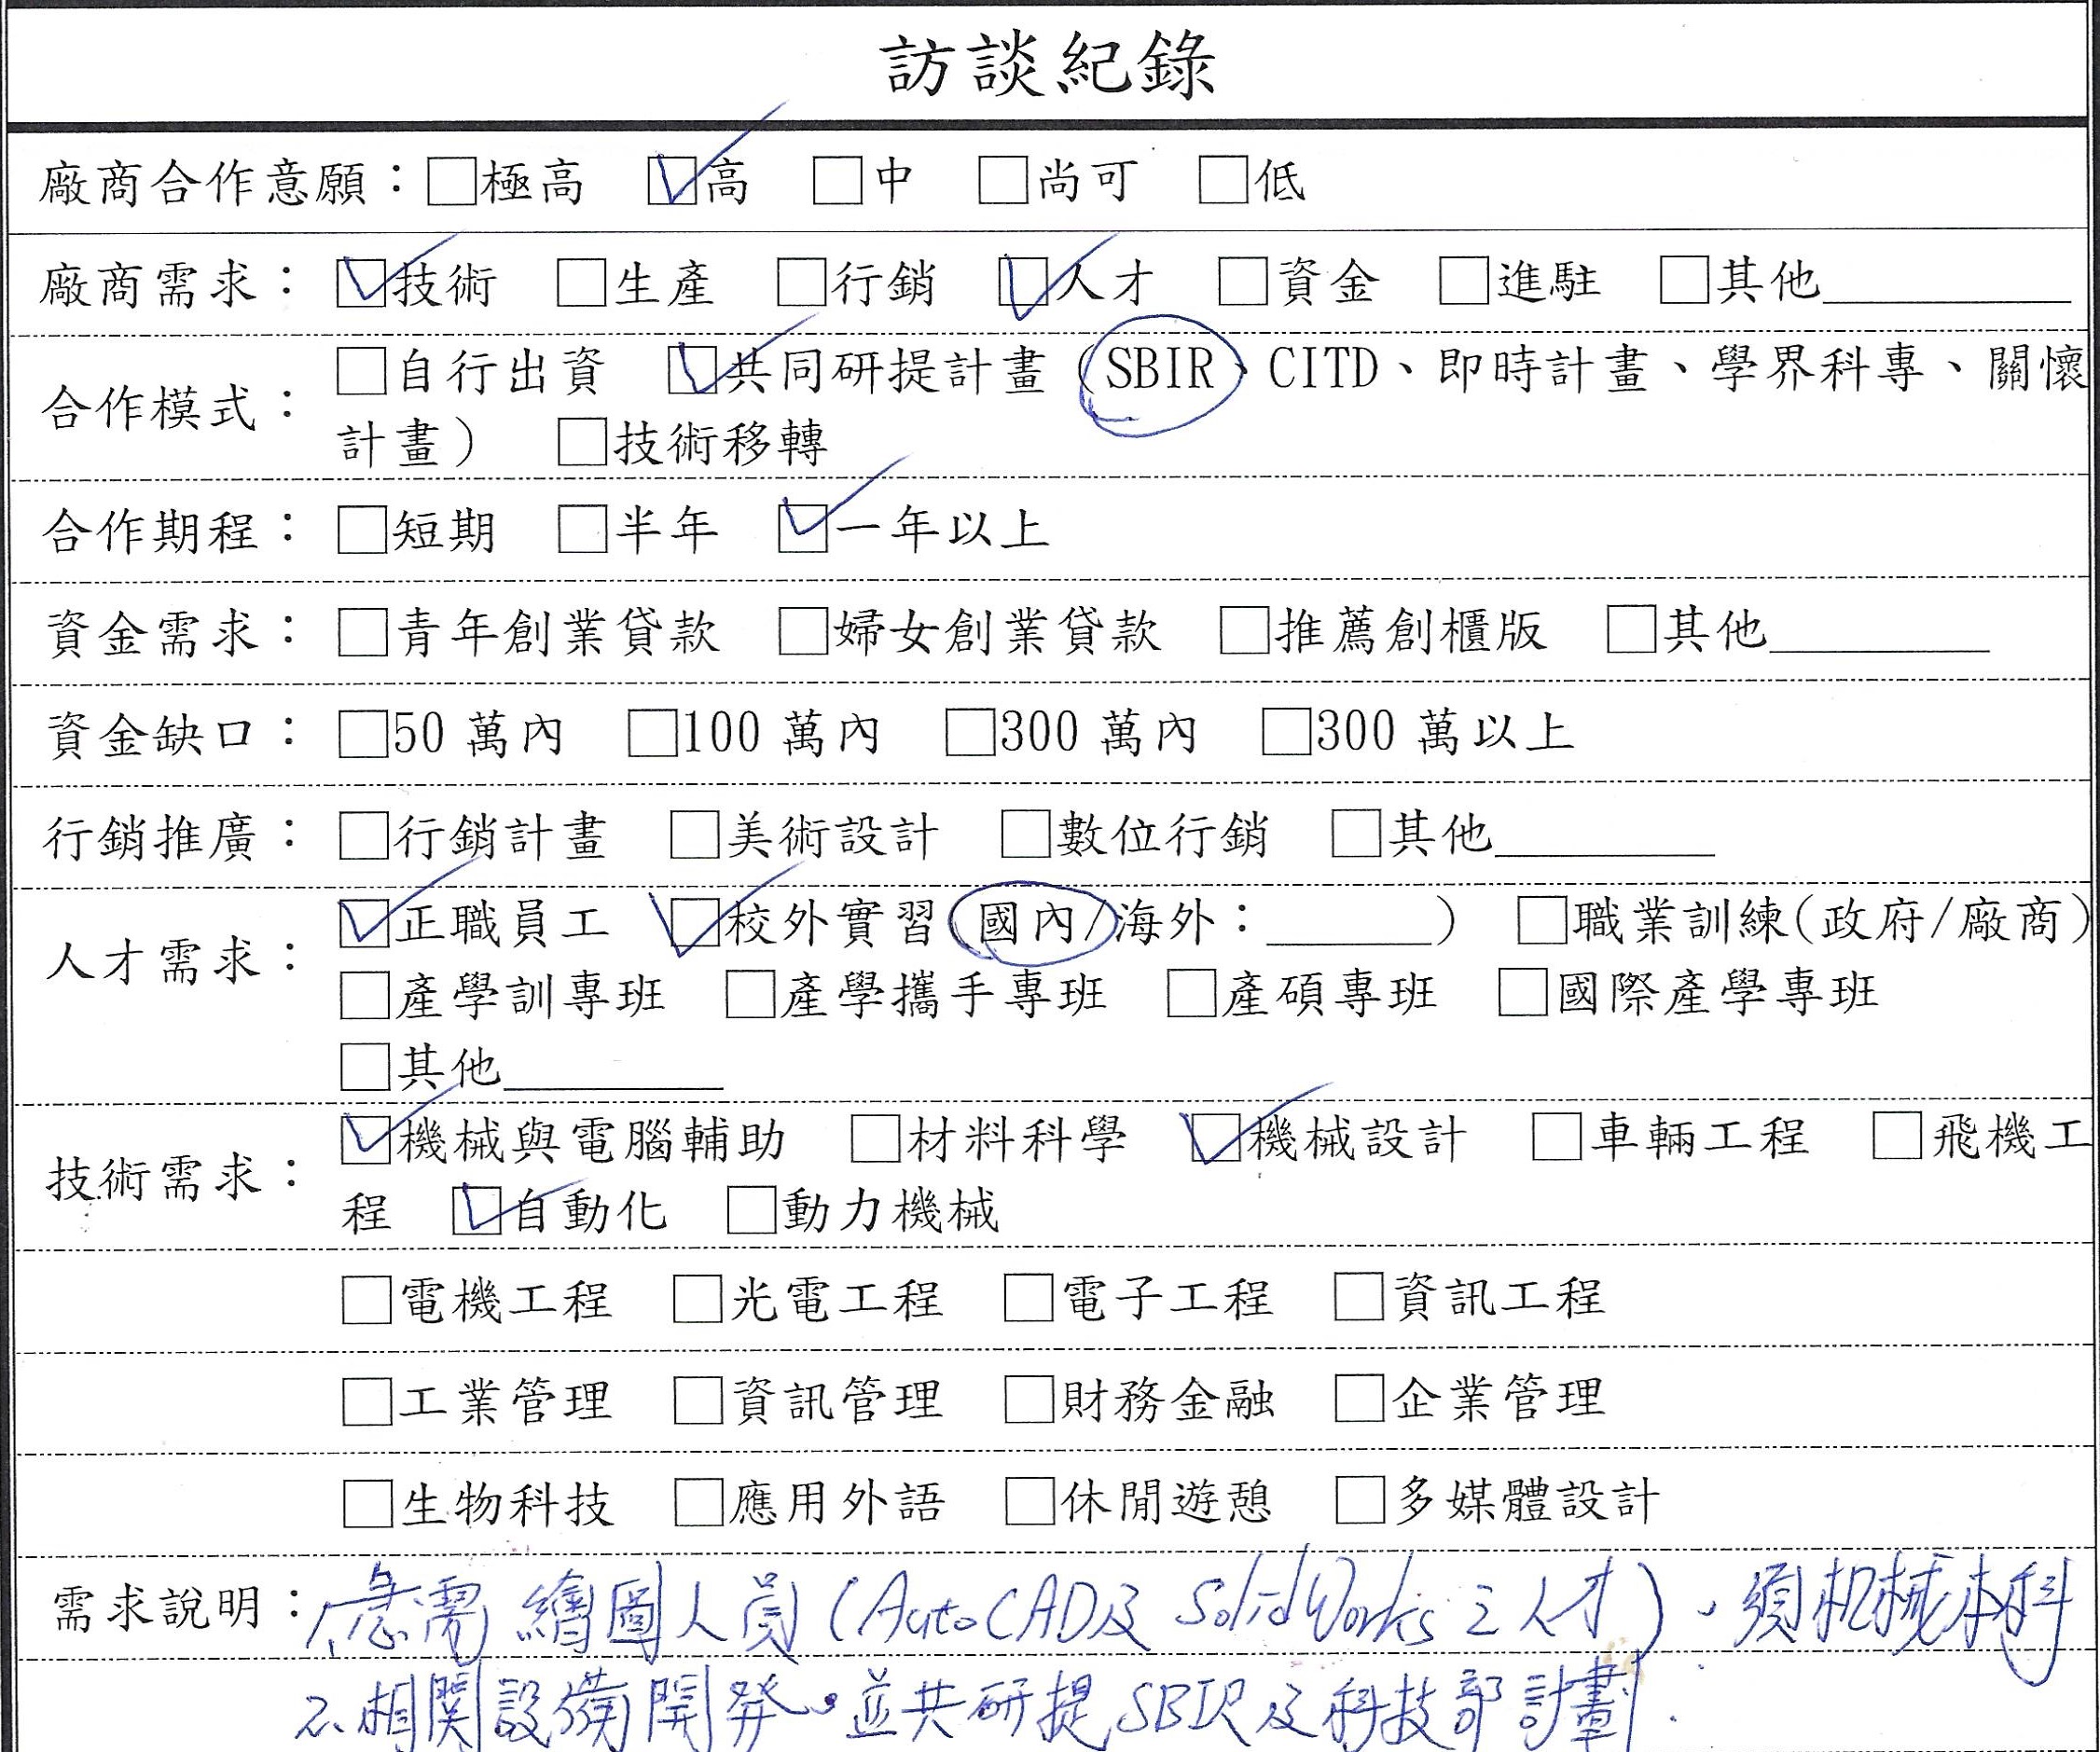 訪談紀錄
廠商合作意願：□極高 ☑高 □中 □尚可 □低
廠商需求：☑技術 □生產 □行銷 ☑人才 □資金 □進駐 □其他________
合作模式：□自行出資 ☑共同研提計畫（SBIR、CITD、即時計畫、學界科專、關懷
計畫） □技術移轉
合作期程：□短期 □半年 ☑一年以上
資金需求：□青年創業貸款 □婦女創業貸款 □推薦創櫃版 □其他________
資金缺口：□50 萬內 □100 萬內 □300 萬內 □300 萬以上
行銷推廣：□行銷計畫 □美術設計 □數位行銷 □其他________
人才需求：☑正職員工 ☑校外實習(國內/海外：______) □職業訓練(政府/廠商)
□產學訓專班 □產學攜手專班 □產碩專班 □國際產學專班
□其他________
技術需求：☑機械與電腦輔助 □材料科學 ☑機械設計 □車輛工程 □飛機工
程 ☑自動化 □動力機械
□電機工程 □光電工程 □電子工程 □資訊工程
□工業管理 □資訊管理 □財務金融 □企業管理
□生物科技 □應用外語 □休閒遊憩 □多媒體設計
需求說明：1.急需繪圖人員(AutoCAD及SolidWorks之人才)、須机械本科
2.相関設備開發。並共研提SBIR及科技部計畫.